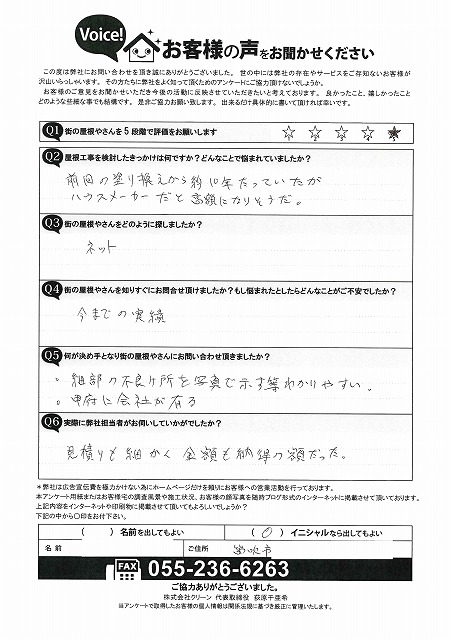 Voice!
お客様の声をお聞かせください
この度は弊社にお問い合わせを頂き誠にありがとうございました。 世の中には弊社の存在やサービスをご存知ないお客様が
沢山いらっしゃいます。 その方たちに弊社をよく知って頂くためのアンケートにご協力頂けないでしょうか。
お客様のご意見をお聞かせいただき今後の活動に反映させていただきたいと考えております。 良かったこと、嬉しかったこと
どのような些細な事でも結構です。 是非ご協力お願い致します。 出来るだけ具体的に書いて頂ければ幸いです。
Q1 街の屋根やさんを5段階で評価をお願いします ☆ ☆ ☆ ☆ ★
Q2 屋根工事を検討したきっかけは何ですか？どんなことで悩まれていましたか？
前回の塗り換えから約10年たっていたが
ハウスメーカーだと高額になりそうだ。
Q3 街の屋根やさんをどのように探しましたか？
ネット
Q4 街の屋根やさんを知りすぐにお問合せ頂けましたか？もし悩まれたとしたらどんなことがご不安でしたか？
今までの実績
Q5 何が決め手となり街の屋根やさんにお問い合わせ頂きましたか？
。細部の不良ヶ所を写真で示す等わかりやすい。
。甲府に会社が有る
Q6 実際に弊社担当者がお伺いしていかがでしたか？
見積りも細かく金額も納得の額だった。
＊弊社は広告宣伝費を極力かけない為にホームページだけを頼りにお客様への営業活動を行っております。
本アンケート用紙またはお客様宅の調査風景や施工状況、お客様の顔写真を随時ブログ形式のインターネットに掲載させて頂いております。
上記内容をインターネットや印刷物に掲載させて頂いてもよろしいでしょうか？
下記の中から〇印をお付下さい。
（ ）名前を出してもよい （〇）イニシャルなら出してもよい
名 前 ご住所 笛吹市
FAX 055-236-6263
ご協力ありがとうございました。
株式会社クリーン 代表取締役 荻原千亜希
当アンケートで取得したお客様の個人情報は関係法規に基づき厳正に管理いたします。